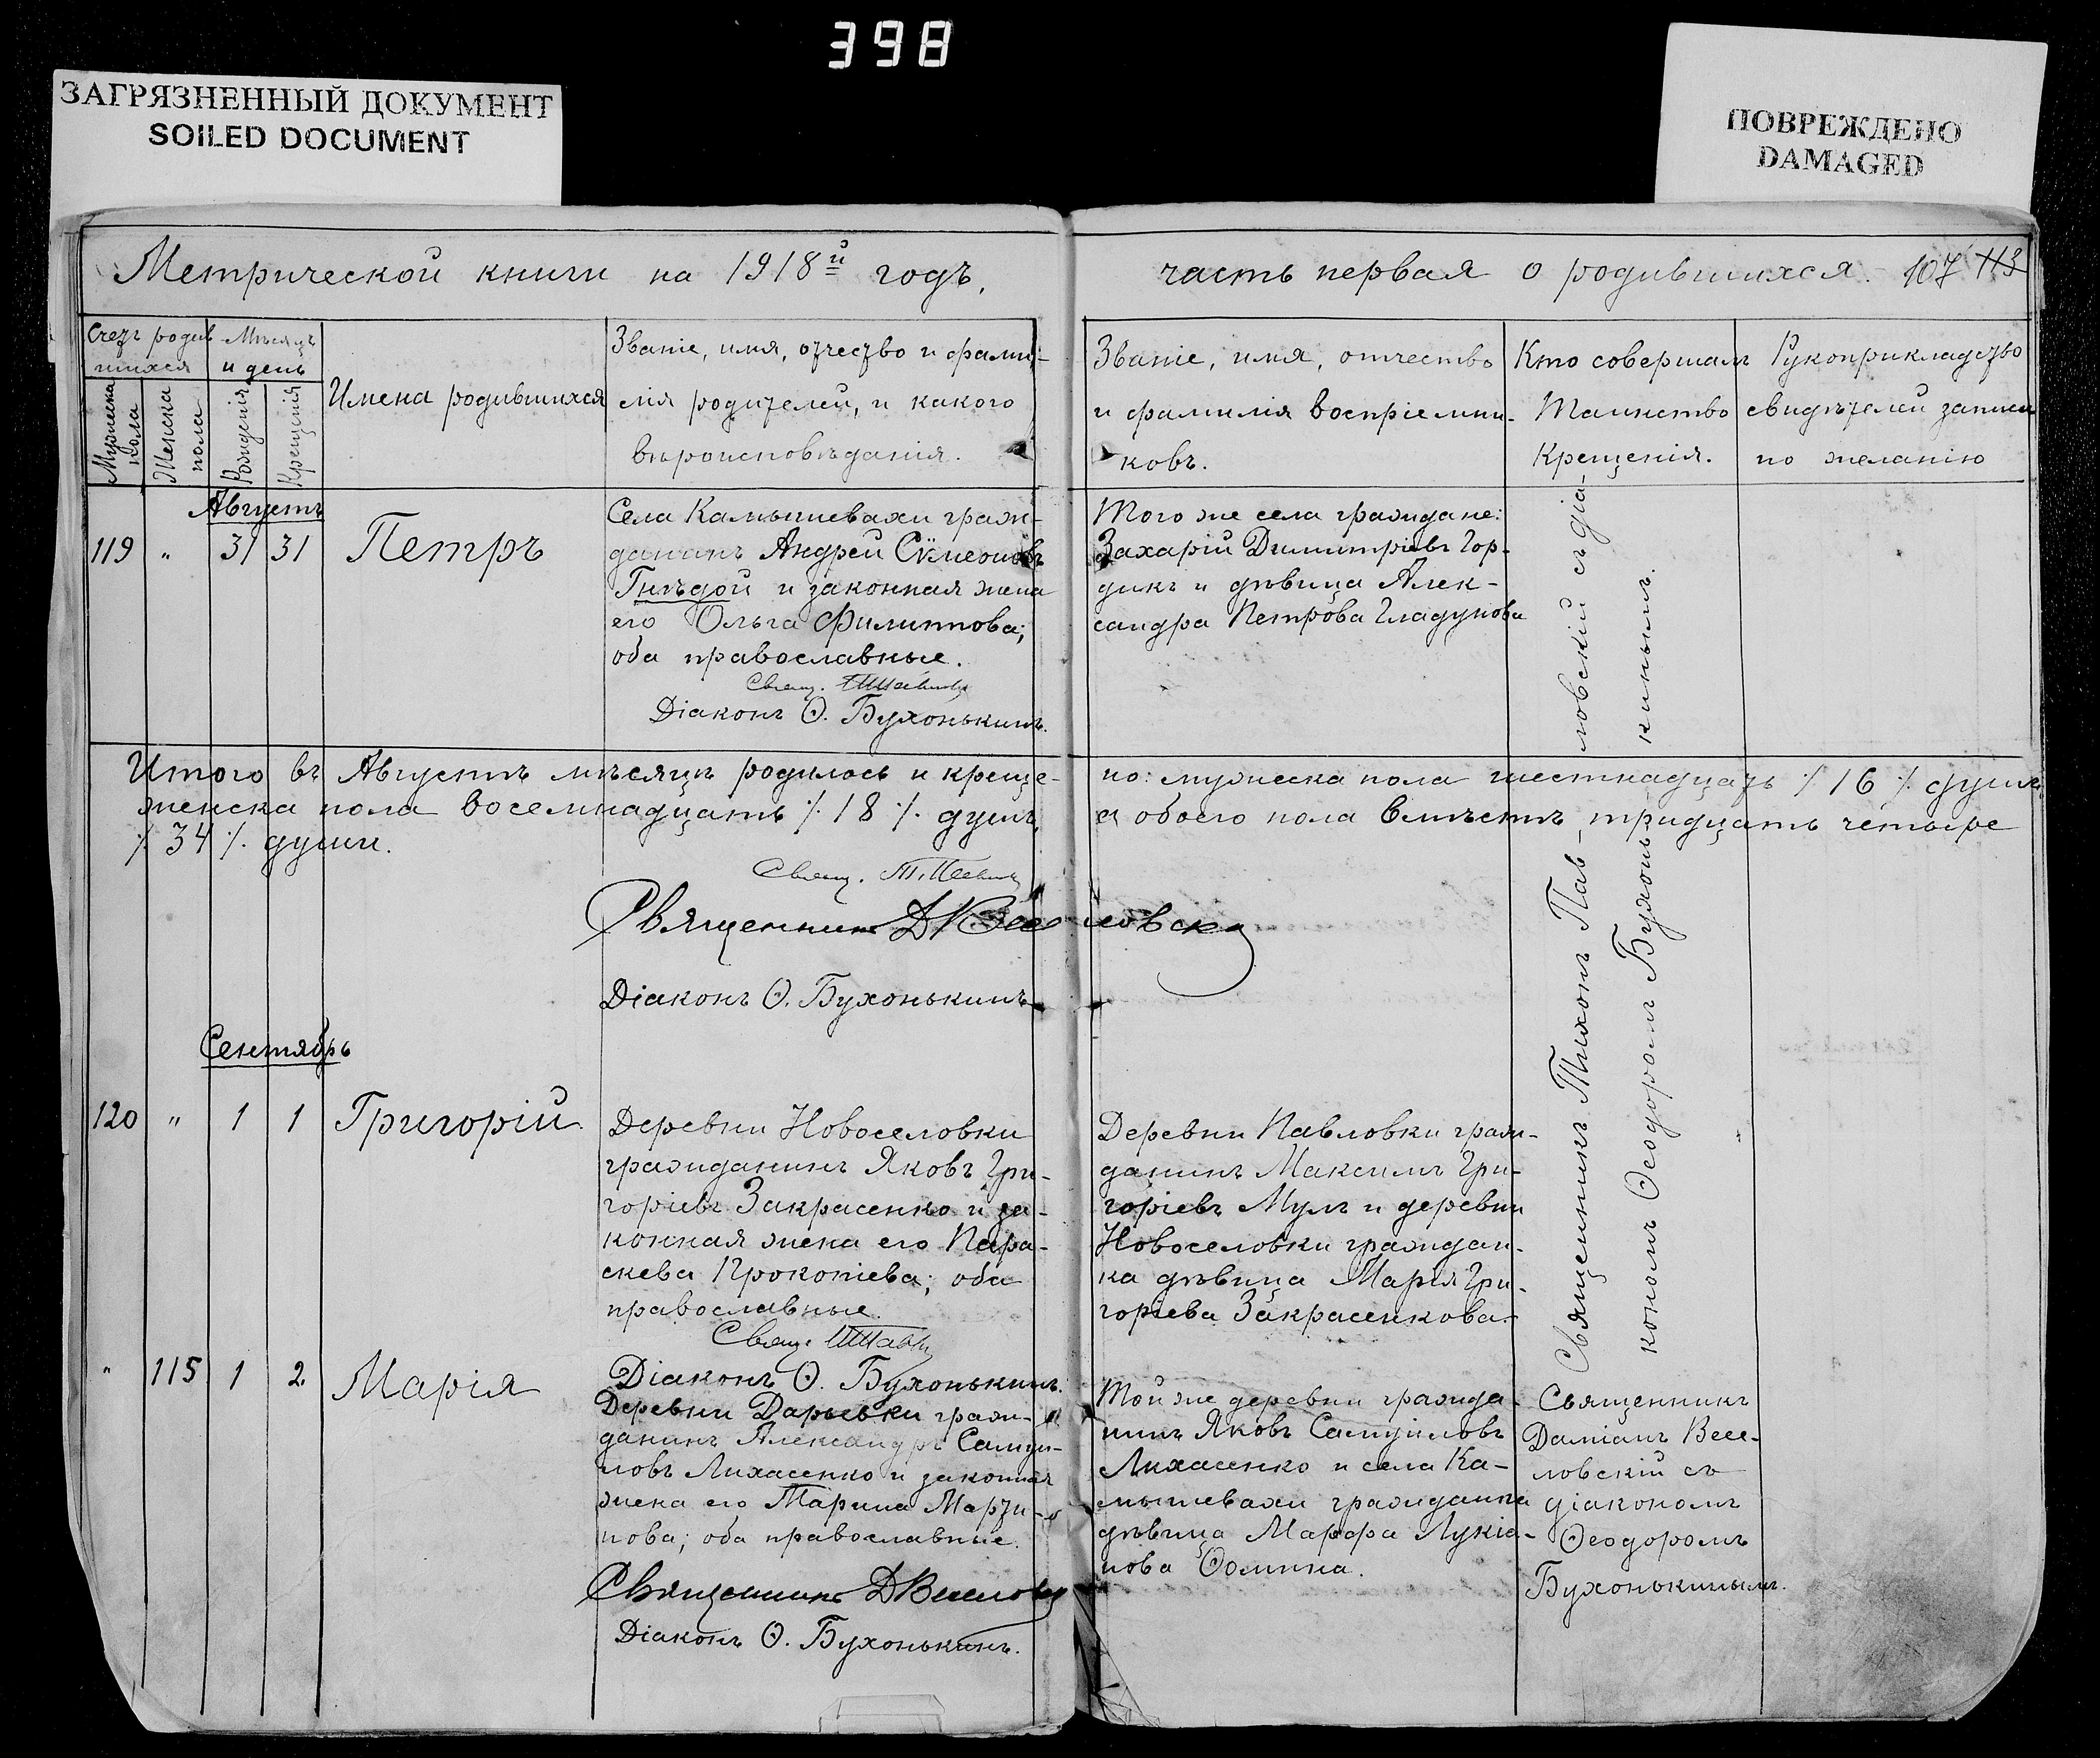 398
ЗАГРЯЗНЕННЫЙ ДОКУМЕНТ
SOILED DOCUMENT
ПОВРЕЖДЕНО
DAMAGED
Метрической книги на 1918й годъ,
часть первая о родившихся. 107 113
Счетъ родив
шихся
Мѣсяцъ
и день
Мужеска
пола
Женска
пола
Рожденія
Крещенія
Имена родившихся
Званіе, имя, отчество и фами-
лія родителей, и какого
вѣроисповѣданія.
Званіе, имя, отчество
и фамилія воспріемни-
ковъ.
Кто совершалъ
Таинство
Крещенія.
Рукоприкладство
свидѣтелей записи
по желанію
Августъ
119 " 31 31 Петръ
Села Камышевахи граж-
данинъ Андрей Сѵмеоновъ
Гнѣдой и законная жена
его Ольга Филиппова;
оба православные.
Свящ.
Діаконъ Ѳ. Бухонькинъ.
Того же села граждане:
Захарій Димитріевъ Гор-
дикъ и дѣвица Алек-
сандра Петрова Гладунова
Итого въ Августѣ мѣсяцѣ родилось и креще-
но: мужеска пола шестнадцать ٪ 16 ٪ душъ,
женска пола восемнадцать ٪ 18 ٪ душъ,
а обоего пола вмѣстѣ тридцать четыре
٪ 34 ٪ души.
Свящ.
Священникъ Д Веселовскій
Діаконъ Ѳ. Бухонькинъ
Сентябрь
120 " 1 1 Григорій
Деревни Новоселовки
гражданинъ Яковъ Гри-
горіевъ Закрасенко и за-
конная жена его Пара-
скева Прокопіева; оба
православные.
Свящ.
Діаконъ Ѳ. Бухонькинъ.
Деревни Павловки граж-
данинъ Максимъ Гри-
горіевъ Мулъ и деревни
Новоселовки граждан-
ка дѣвица Марія Гри-
горіева Закрасенкова.
Священникъ Тихонъ Пав-ловскій съ діа-
кономъ Ѳеодоромъ Бухонь-кинымъ.
" 115 1 2 Марія
Деревни Дарьевки граж-
данинъ Александръ Самуи-
ловъ Лихасенко и законная
жена его Марина Марти-
нова; оба православные.
Священникъ Д Веселовскій
Діаконъ Ѳ. Бухонькинъ.
Той же деревни гражда-
нинъ Яковъ Самуиловъ
Лихасенко и села Ка-
мышевахи гражданка
дѣвица Марфа Лукіа-
нова Ѳомина.
Священникъ
Даміанъ Весе-
ловскій съ
діакономъ
Ѳеодоромъ
Бухонькинымъ.